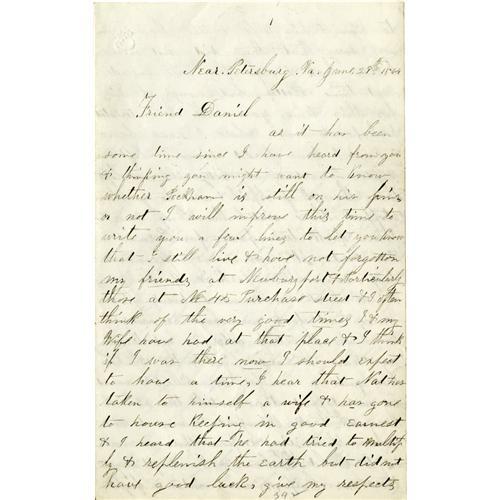 Near Petersburg Va. June 28th 1864
Friend Daniel
as it has been
some time since I have heard from you
& thinking you might want to know
whether Peckham is still on his pins
or not I will improve this time to
write you a few lines to let you know
that I still live & have not forgotton
my friends at Newburyport & Particularly
those at No 45 Purchase street & I often
think of the very good times I & my
Wife have had at that place & I think
if I was there now I should expect
to have a time, I hear that Nat has
taken to himself a wife & has gone
to house Keeping in good earnest
& I heard that he had tried to multip
ly & replenish the earth but did not
have good luck, give my respects